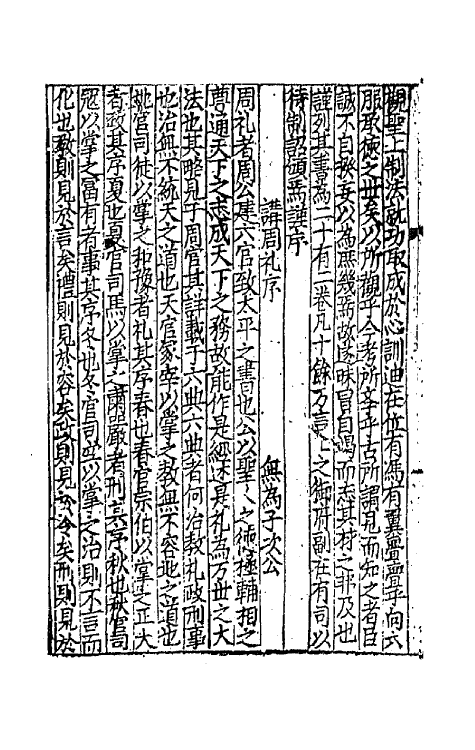 觀聖上制法就功取成於心訓迪在位有馮有翼亹亹乎向六
服承德之世矣以所觀乎今考所學乎古所謂見而知之者臣
誠不自揆妄以為庶幾焉故遂昧冒自竭而忘其材之弗及也
謹列其書為二十有二卷凡十餘万言上之御府副在有司以
待制詔頒焉謹序
講周礼序
無為子次公
周礼者周公建六官致太平之書也公以聖人之德極輔相之
尊通天下之志成天下之務故能作是經述是礼為万世之大
法也其略見于周官其詳載于六典六典者何治教礼政刑事
也治無不統天之道也天官冢宰以掌之教無不容地之道也
地官司徒以掌之和豫者礼其序春也春官宗伯以掌之正大
者政其序夏也夏官司馬以掌之肅嚴者刑其序秋也秋官司
寇以掌之富有者事其序冬也冬官司空以掌之治則不言而
化也教則見於言矣禮則見於容矣政則見於令矣刑則見於